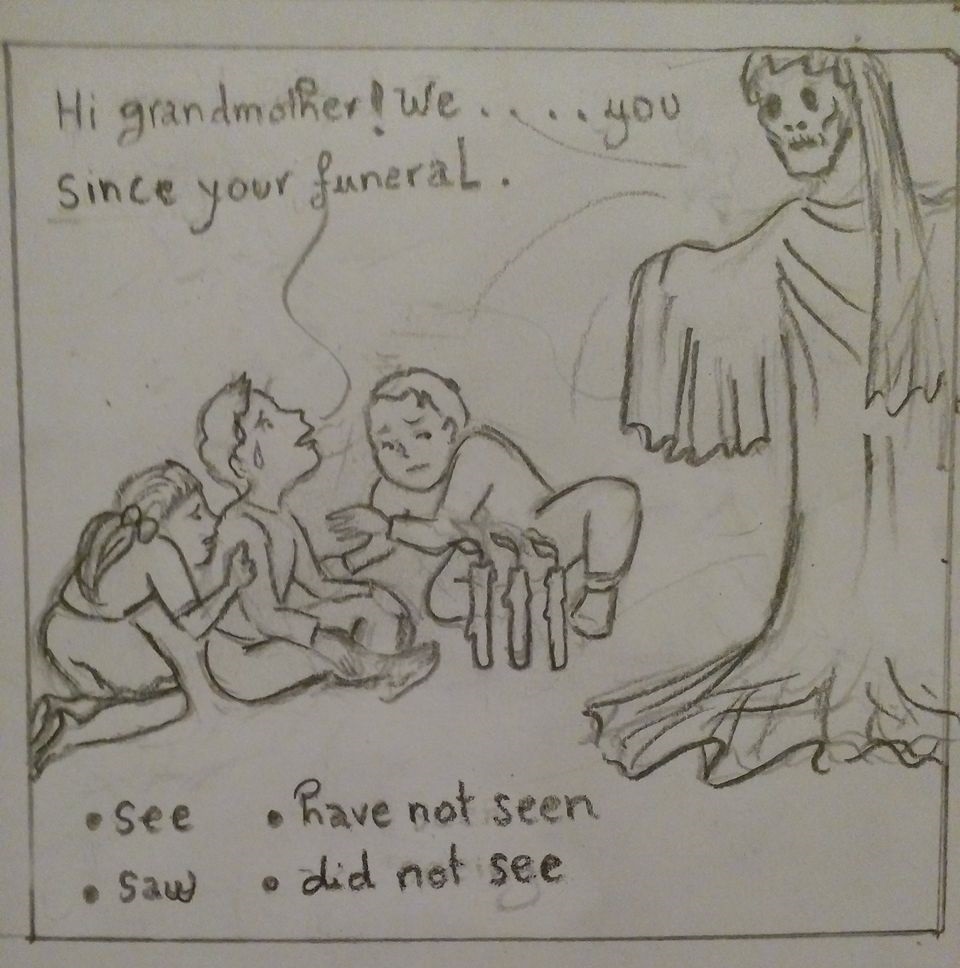 Hi grandmother! We . . . . you
since your funeral.
• see • have not seen
• saw • did not see